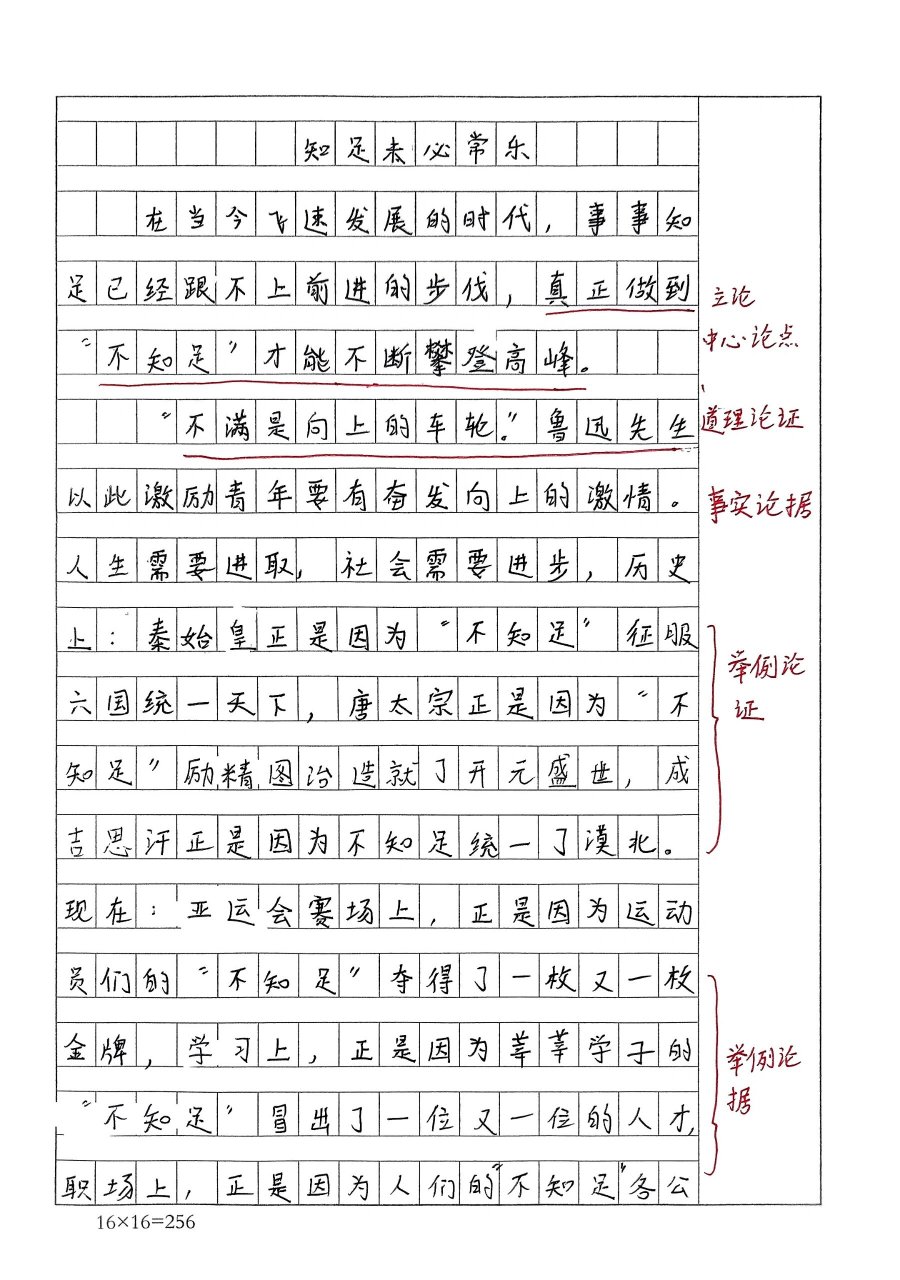 知足未必常乐
在当今飞速发展的时代，事事知
足已经跟不上前进的步伐，真正做到
“不知足”才能不断攀登高峰。
“不满是向上的车轮。”鲁迅先生
以此激励青年要有奋发向上的激情。
人生需要进取，社会需要进步，历史
上：秦始皇正是因为“不知足”征服
六国统一天下，唐太宗正是因为“不
知足”励精图治造就了开元盛世，成
吉思汗正是因为不知足统一了漠北。
现在：亚运会赛场上，正是因为运动
员们的“不知足”夺得了一枚又一枚
金牌，学习上，正是因为莘莘学子的
“不知足”冒出了一位又一位的人才，
职场上，正是因为人们的“不知足”各公
16×16=256
立论
中心论点
道理论证
事实论据
举例论
证
举例论
据